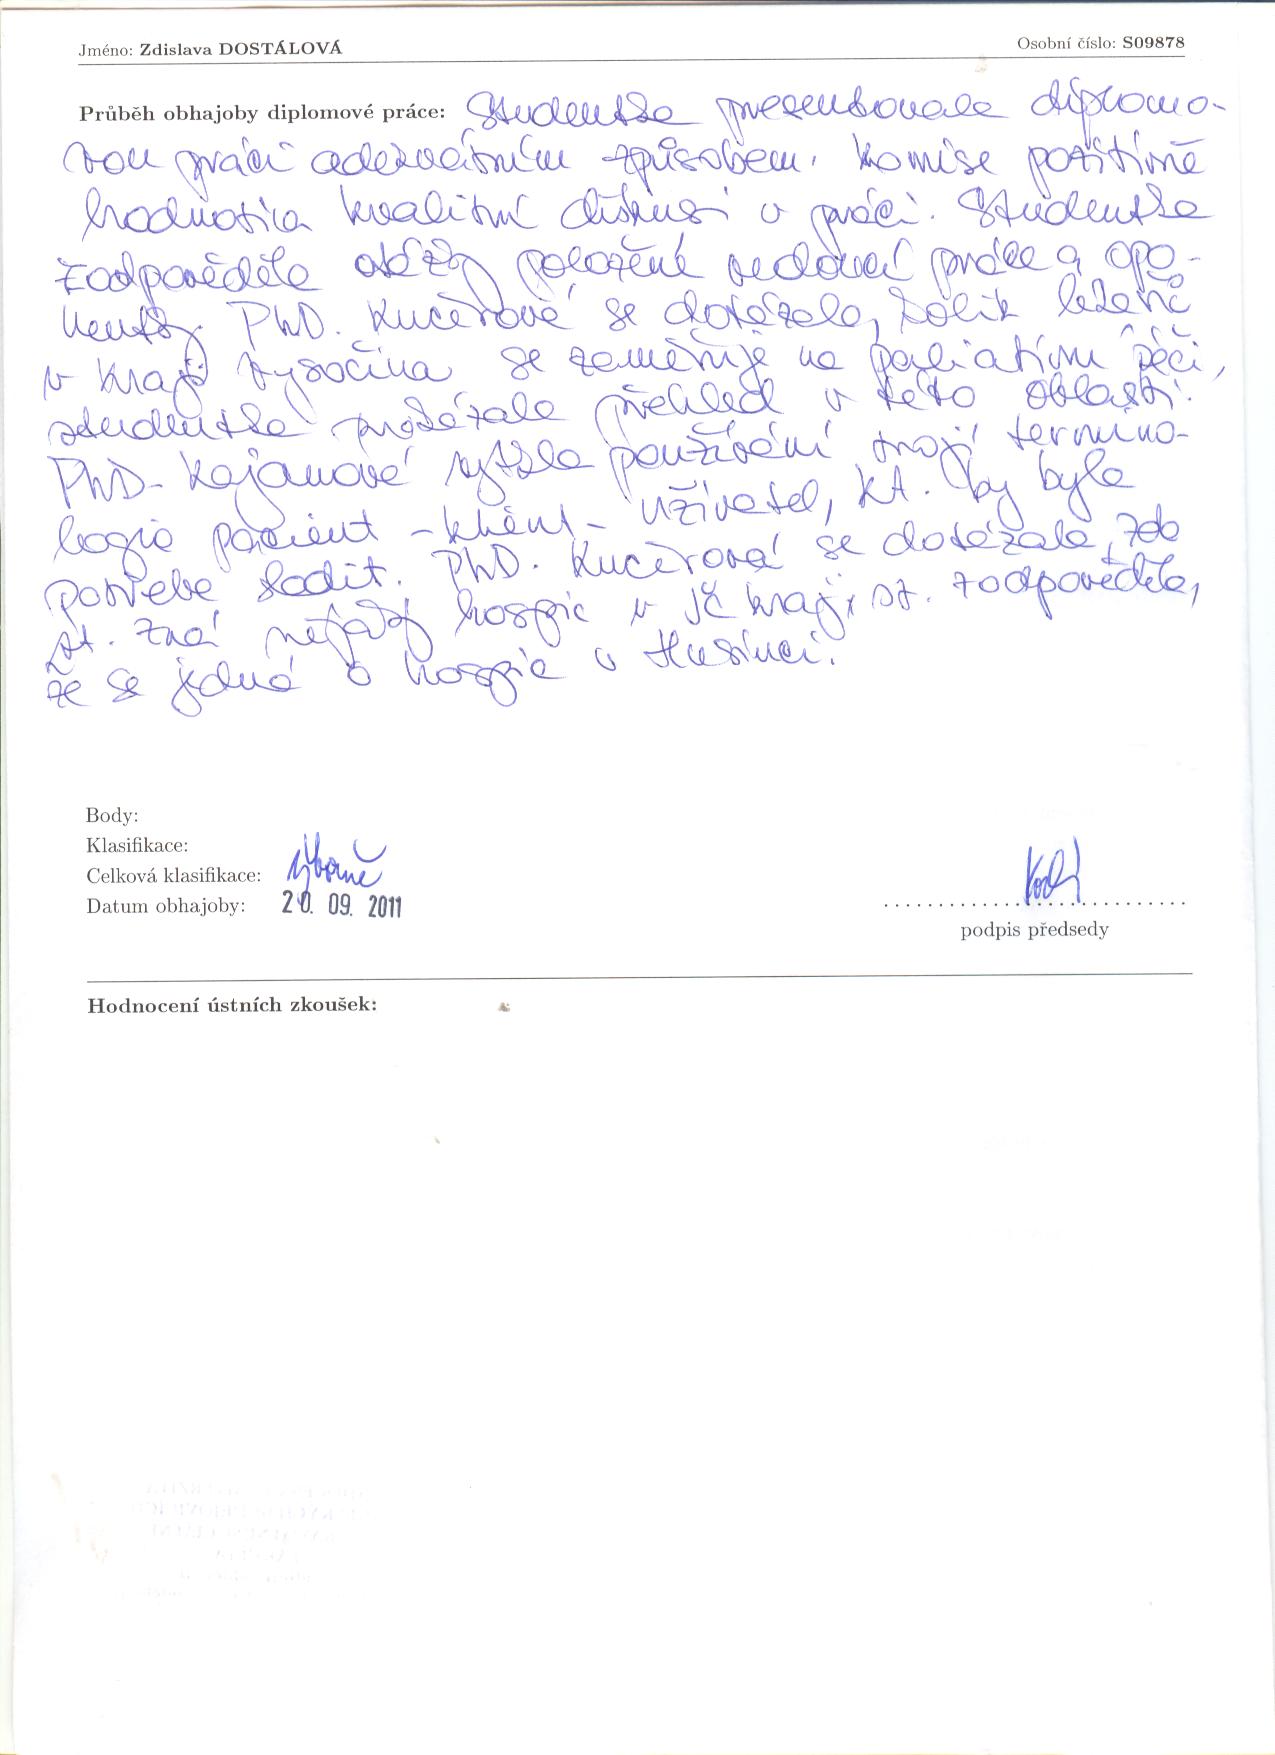 Jméno: Zdislava DOSTÁLOVÁ
Osobní číslo: S09878
Průběh obhajoby diplomové práce: Studentka prezentovala diplomo-
vou práci adekvátním způsobem. Komise pozitivně
hodnotila kvalitní diskusi v práci. Studentka
zodpověděla otázky položené vedoucí práce a opo-
nentky. PhD. Kučerová se dotázala, kolik
v kraji Vysočina se zaměřuje na paliativní péči,
studentka prokázala přehled v této oblasti.
PhD. Kajanová vytkla používání trojí termino-
logie pacient - klient - uživatel, KA. by bylo
potřeba sladit. PhD. Kučerová se dotázala, zda
st. zná nějaký hospic v JČ kraji, st. zodpověděla,
že se jedná o hospic v Husinci.
Body:
Klasifikace:
Celková klasifikace: výborně
Datum obhajoby: 20. 09. 2011
podpis předsedy
Hodnocení ústních zkoušek: